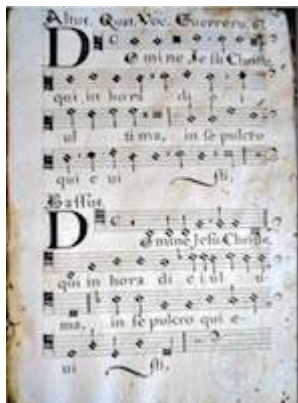 Altus. Quat. Voc. Guerrero.
Domine Jesu Christe,
qui in hora di e i
ul tima, in se pulcro
qui e ui sti,
Bassus.
Domine Jesu Christe,
qui in hora di e i ul ti
ma, in se pulcro qui e-
ui sti,